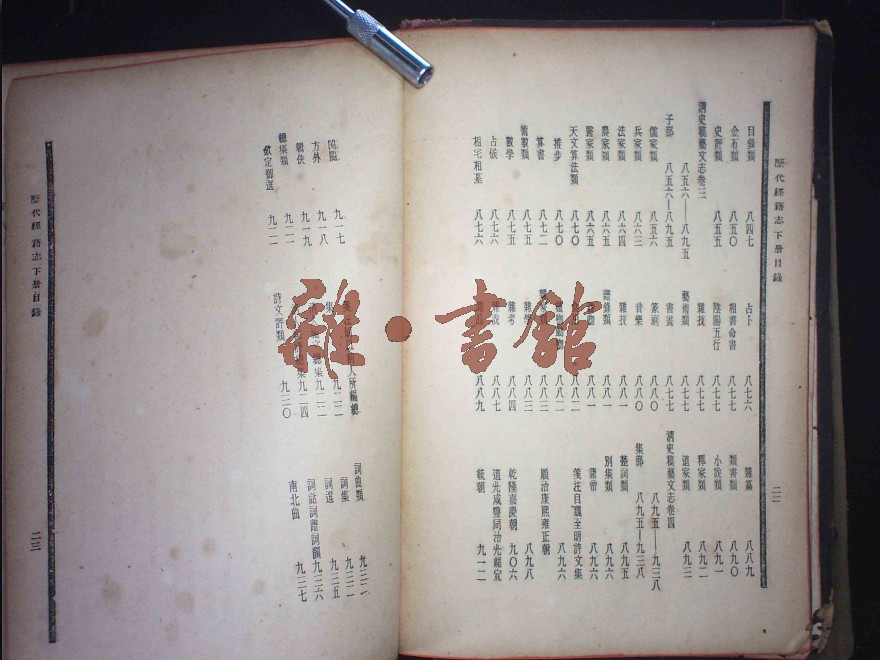 歷代經籍志下册目錄
二二
目錄類 八四七
金石類 八五〇
史評類 八五五
清史稿藝文志卷三
八五六——八九五
子部 八五六—八九五
儒家類 八五六
兵家類 八六三
法家類 八六四
農家類 八六五
醫家類 八六五
天文算法類 八七〇
推步 八七〇
算書 八七二
術數類 八七五
數學 八七五
占候 八七六
相宅相墓 八七六
占卜 八七六
相書命書 八七七
陰陽五行 八七七
雜技 八七七
藝術類 八七七
書畫 八七七
篆刻 八八〇
音樂 八八〇
雜技 八八一
譜錄類 八八一
八八一
八八二
八八二
八八三
雜學 八八三
雜考 八八四
雜說 八八七
八八九
雜纂 八八九
類書類 八九〇
小說類 八九一
釋家類 八九二
道家類 八九三
清史稿藝文志卷四
八九五——九三八
集部 八九五—九三八
楚詞類 八九五
別集類 八九六
諸帝 八九六
箋注自魏至明詩文集
八九六
順治康熙雍正朝
八九八
乾隆嘉慶朝 九〇六
道光咸豐同治光緒宣
統朝 九一二
閨閣 九一七
方外 九一八
輯佚 九一九
總集類 九二一
欽定御選 九二一
人所編總
集 九二二
總集 九二二
集 九二四
詩文評類 九三〇
詞曲類 九三一
詞集 九三一
詞選 九三五
詞話詞譜詞韻 九三六
南北曲 九三七
歷代經籍志下册目錄
二三
雜·書館